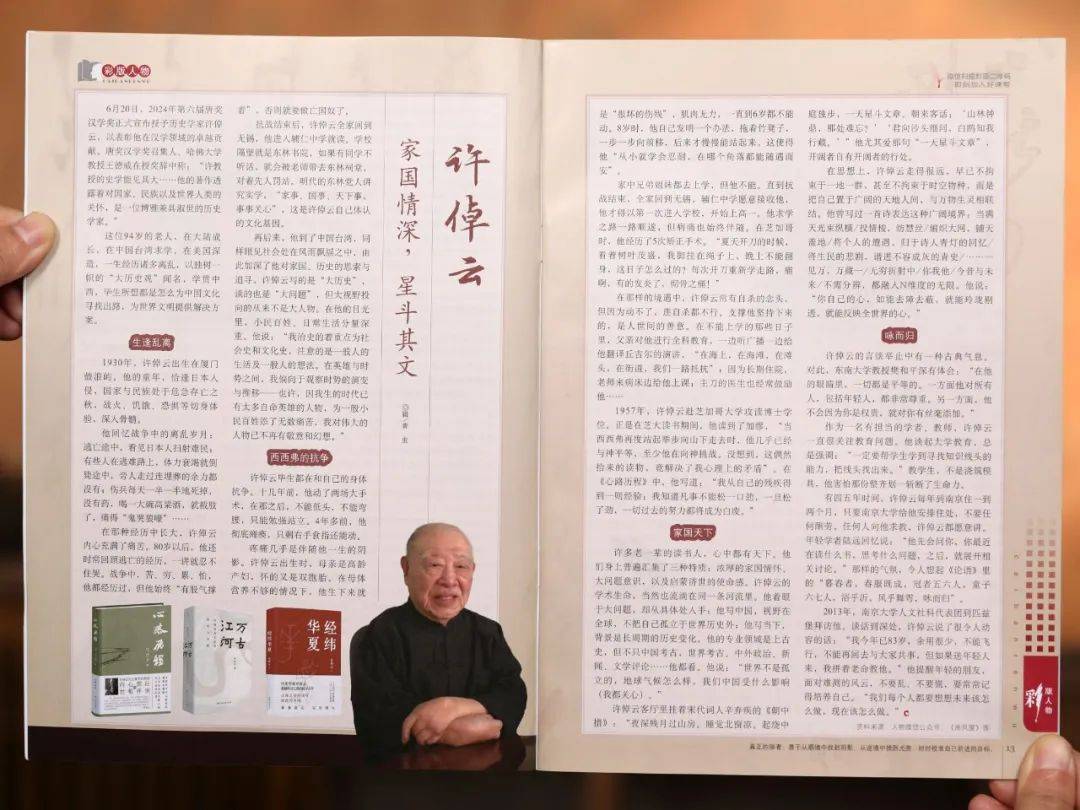 彩版人物
CAIBANRENWU
6月20日，2024年第六届唐奖
汉学奖正式宣布授予历史学家许倬
云，以表彰他在汉学领域的卓越贡
献。唐奖汉学奖召集人、哈佛大学
教授王德威在授奖辞中称：“许教
授的史学能见其大……他的著作透
露着对国家、民族以及世界人类的
关怀，是一位博雅兼具淑世的历史
学家。”
这位94岁的老人，在大陆成
长，在中国台湾求学，在美国深
造，一生经历诸多离乱，以独树一
帜的“大历史观”闻名，学贯中
西，毕生所想都是怎么为中国文化
寻找出路，为世界文明提供解决方
案。
生逢乱离
1930年，许倬云出生在厦门
鼓浪屿。他的童年，恰逢日本人
侵，国家与民族处于危急存亡之
秋，战火、饥饿、恐惧等切身体
验，深入骨髓。
他回忆战争中的离乱岁月：
逃亡途中，看见日本人扫射难民；
有些人在逃难路上，体力衰竭就倒
毙途中，旁人走过连埋葬的余力都
没有；伤兵每天一半一半地死掉，
没有药，喝一大碗高粱酒，就截肢
了，痛得“鬼哭狼嚎”……
在那种经历中长大，许倬云
内心充满了痛苦。80岁以后，他还
时常回顾逃亡的经历，一讲就忍不
住哭。战争中，苦、穷、累、怕，
他都经历过，但他始终“有股气撑
着”，否则就要做亡国奴了。
抗战结束后，许倬云全家回到
无锡，他进入辅仁中学就读。学校
隔壁就是东林书院，如果有同学不
听话，就会被老师带去东林祠堂，
对着先人罚站。明代的东林党人讲
究实学，“家事、国事、天下事，
事事关心”，这是许倬云自己体认
的文化基因。
再后来，他到了中国台湾，同
样眼见社会处在风雨飘摇之中，由
此加深了他对家国、历史的思索与
追寻。许倬云写的是“大历史”，
谈的也是“大问题”，但大视野投
向的从来不是大人物。在他的目光
里，小民百姓、日常生活分量深
重。他说：“我治史的着重点为社
会史和文化史，注意的是一般人的
生活及一般人的想法。在英雄与时
势之间，我倾向于观察时势的演变
与推移——也许，因我生的时代已
有太多自命英雄的人物，为一般小
民百姓添了无数痛苦，我对伟大的
人物已不再有敬意和幻想。”
西西弗的抗争
许倬云毕生都在和自己的身体
抗争。十几年前，他动了两场大手
术，在那之后，不能低头，不能弯
腰，只能勉强站立。4年多前，他
彻底瘫痪，只剩右手食指还能动。
疼痛几乎是伴随他一生的阴
影。许倬云出生时，母亲是高龄
产妇，怀的又是双胞胎，在母体
营养不够的情况下，他生下来就
许倬云
家国情深，星斗其文
心路历程
万古江河
经纬华夏
是“报坏的伤残”，肌肉无力，一直到6岁都不能
动。8岁时，他自己发明一个办法，拖着竹凳子，
一步一步向前移，后来才慢慢能站起来。这使得
他“从小就学会忍耐，在哪个角落都能随遇而
安”。
家中兄弟姐妹都去上学，但他不能。直到抗
战结束，全家回到无锡，辅仁中学愿意接收他，
他才得以第一次进入学校，开始上高一。他求学
之路一路顺遂，但病痛也始终伴随。在芝加哥
时，他经历了5次矫正手术。“夏天开刀的时候，
看着树叶茂盛，我脚挂在绳子上，晚上不能翻
身，这日子怎么过的？每次开刀重新学走路，痛
啊，有的发炎了，彻骨之痛！”
在那样的境遇中，许倬云常有自杀的念头，
但因为动不了，连自杀都不行。支撑他坚持下来
的，是人世间的善意。在不能上学的那些日子
里，父亲对他进行全科教育，一边听广播一边给
他翻译丘吉尔的演讲，“在海上，在海滩，在滩
头，在街道，我们一路抵抗”；因为长期住院，
老师来病床边给他上课；主刀的医生也经常鼓励
他……
1957年，许倬云赴芝加哥大学攻读博士学
位。正是在芝大读书期间，他读到了加缪，“当
西西弗再度站起举步向山下走去时，他几乎已经
与神平等，至少他在向神挑战。没想到，这偶然
拾来的读物，竟解决了我心理上的矛盾”。在
《心路历程》中，他写道：“我从自己的残疾得
到一则经验：我知道凡事不能松一口劲，一旦松
了劲，一切过去的努力都将成为白废。”
家国天下
许多老一辈的读书人，心中都有天下。他
们身上普遍汇集了三种特质，浓厚的家国情怀、
大问题意识，以及启蒙济世的使命感。许倬云的
学术生命，当然也流淌在同一条河流里。他着眼
于大问题，却从具体处入手；他写中国，视野在
全球，不把自己孤立于世界历史外；他写当下，
背景是长周期的历史变化。他的专业领域是上古
史，但不只中国考古、世界考古，中外政治、新
闻、文学评论……他都看。他说：“世界不是孤
立的，地球气候怎么样，我们中国受什么影响
（我都关心）。”
许倬云客厅里挂着宋代词人辛弃疾的《朝中
措》：“夜深残月过山房，睡觉北窗凉。起绕中
庭独步，一天星斗文章。朝来客话，‘山林钟
鼎，那处难忘？’‘君向沙头细问，白鸥知我
行藏。’”他尤其爱那句“一天星斗文章”，
开阔者自有开阔者的行处。
在思想上，许倬云走得很远，早已不拘
束于一地一群，甚至不拘束于时空物种，而是
把自己置于广阔的天地人间，与万物生灵相联
结。他曾写过一首诗表达这种广阔境界：当满
天光束纵横/投情梭，纺慧丝/编织大网，铺天
盖地/将个人的遭遇，归于诗人青灯的回忆/
得生民的悲剧，谱进不容成灰的青史/……/
见万，万藏一/无穷折射中/你我他/今昔与未
来/不需分辨，都融入N维度的无限。他说：
“你自己的心，如能去障去蔽，就能玲珑剔
透，就能反映全世界的心。”
咏而归
许倬云的言谈举止中有一种古典气息。
对此，东南大学教授樊和平深有体会：“在他
的眼睛里，一切都是平等的。一方面他对所有
人，包括年轻人，都非常尊重。另一方面，他
不会因为你是权贵，就对你有丝毫添加。”
作为一名有担当的学者、教师，许倬云
一直很关注教育问题。他谈起大学教育，总
是强调：“一定要帮学生学到寻找知识线头的
能力，把线头找出来。”教学生，不是浇筑模
具，他害怕那份整齐划一斩断了生命力。
有四五年时间，许倬云每年到南京住一到
两个月，只要南京大学给他安排住处，不要任
何酬劳，任何人向他求教，许倬云都愿意讲。
年轻学者陆远回忆说：“他先会问你，你最近
在读什么书，思考什么问题，之后，就展开相
关讨论。”那样的气氛，令人想起《论语》里
的“暮春者，春服既成，冠者五六人，童子
六七人，浴乎沂，风乎舞雩，咏而归”。
2013年，南京大学人文社科代表团到匹兹
堡拜访他，谈话到深处，许倬云说了很令人动
容的话：“我今年已83岁，余用很少，不能飞
行，不能再回去与大家共事，但如果送年轻人
来，我拼着老命教他。”他提醒年轻的朋友，
面对难测的风云，不要乱，不要慌，要常常记
得培养自己。“我们每个人都要想想未来该怎
么做，现在该怎么做。”
caibanrenwu
彩版人物
13